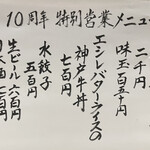 10周年 特別営業メニュー
二千円
味玉百五十円
エシレバターライスの
神戸牛丼
七百円
水餃子
五百円
生ビール六百円